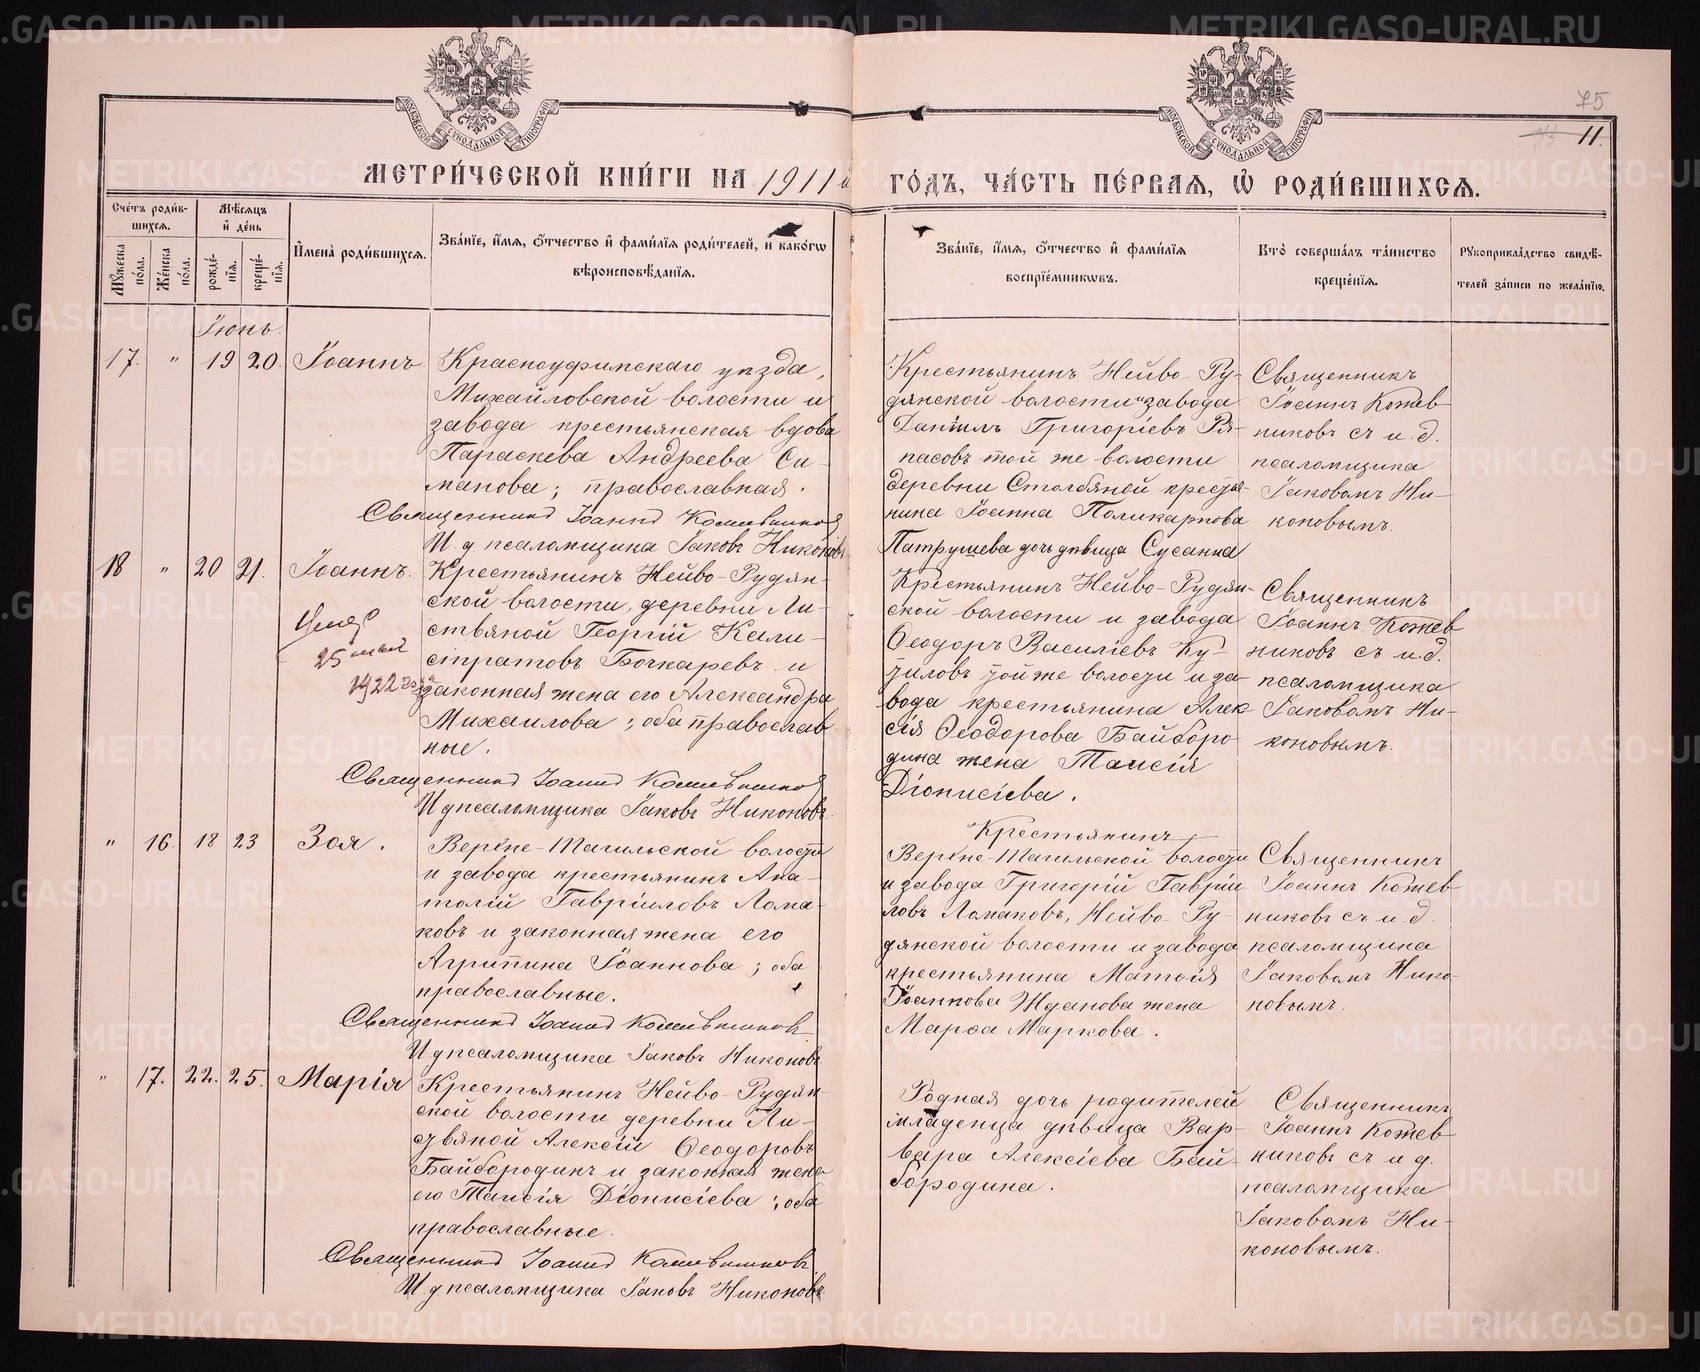 75
11.
МЕТРИ́ЧЕСКОЙ КНИ́ГИ НА 1911 й
ГО́ДЪ, ЧА́СТЬ ПЕ́РВАЯ, Ѡ҆ РОДИ́ВШИХСЯ.
Сче́тъ роди́вшихся.
Мѣ́сяцъ и҆ де́нь
Мꙋ́жеска по́ла.
Же́нска по́ла.
рожде́нїя.
креще́нїя.
И҆мена̀ роди́вшихся.
Зва́нїе, и҆́мя, ѻ҆́тчество и҆ фами́лїя роди́телей, и҆ како́гѡ
вѣроисповѣ́данїя.
Зва́нїе, и҆́мя, ѻ҆́тчество и҆ фами́лїя
воспрїе́мникѡвъ.
Кто̀ соверша́лъ та́инство
креще́нїя.
Рꙋкоприкла́дство свидѣ́-
телей за́писи по жела́нїю.
Іюнь.
17. " 19 20. Іоаннъ
Красноуфимскаго уѣзда,
Михайловской волости и
завода крестьянская вдова
Параскева Андреева Си-
манова; православная.
Священникъ Іоаннъ Кожевниковъ
И. д псаломщика Іаковъ Никоновъ
Крестьянинъ Нейво-Ру-
дянской волости и завода
Даніилъ Григоріевъ Ря-
пасовъ той же волости
деревни Столбяной крестья-
нина Іоанна Поликарпова
Патрушева дочь дѣвица Сусанна
Священникъ
Іоаннъ Кожев-
никовъ съ и. д.
псаломщика
Іаковомъ Ни-
коновымъ.
18 " 20 21. Іоаннъ.
25 мая
1922 года
Крестьянинъ Нейво-Рудян-
ской волости, деревни Ли-
ствяной Георгій Кали-
стратовъ Бочкаревъ и
законная жена его Александра
Михаилова; оба православ-
ные.
Священникъ Іоаннъ Кожевниковъ
И д псаломщика Іаковъ Никоновъ.
Крестьянинъ Нейво-Рудян-
ской волости и завода
Ѳеодоръ Василіевъ Ку-
той же волости и за-
вода крестьянина Алек-
сія Ѳеодорова Байборо-
дина жена Таисія
Діонисіева.
Священникъ
Іоаннъ Кожев
никовъ съ и.д.
псаломщика
Іаковомъ Ни-
коновымъ.
" 16. 18 23 Зоя.
Верхне-Тагильской волости
и завода крестьянинъ Ана-
толій Гавріиловъ Лома-
ковъ и законная жена его
Агрипина Іоаннова; оба
православные.
Священникъ Іоаннъ Кожевниковъ
И д псаломщика Іаковъ Никоновъ
Крестьянинъ
Верхне-Тагильской волости
и завода Григорій Гавріи
ловъ Ломаковъ, Нейво-Ру-
дянской волости и завода
крестьянина Матѳія
Іоаннова Жданова жена
Марѳа Маркова.
Священникъ
Іоаннъ Кожев-
никовъ съ и. д.
псаломщика
Іаковомъ Нико-
новымъ.
" 17. 22. 25. Марія
Крестьянинъ Нейво-Рудян-
ской волости деревни Ли-
ствяной Алексій Ѳеодоровъ
Байбородинъ и законная жена
его Таисія Діонисіева; оба
православные.
Священникъ Іоаннъ Кожевниковъ
И. д псаломщика Іаковъ Никоновъ
Родная дочь родителей
младенца дѣвица Вар-
вара Алексіева Бай-
бородина.
Священникъ
Іоаннъ Кожев-
никовъ съ и д.
псаломщика
Іаковомъ Ни-
коновымъ.
METRIKI.GASO-URAL.RU